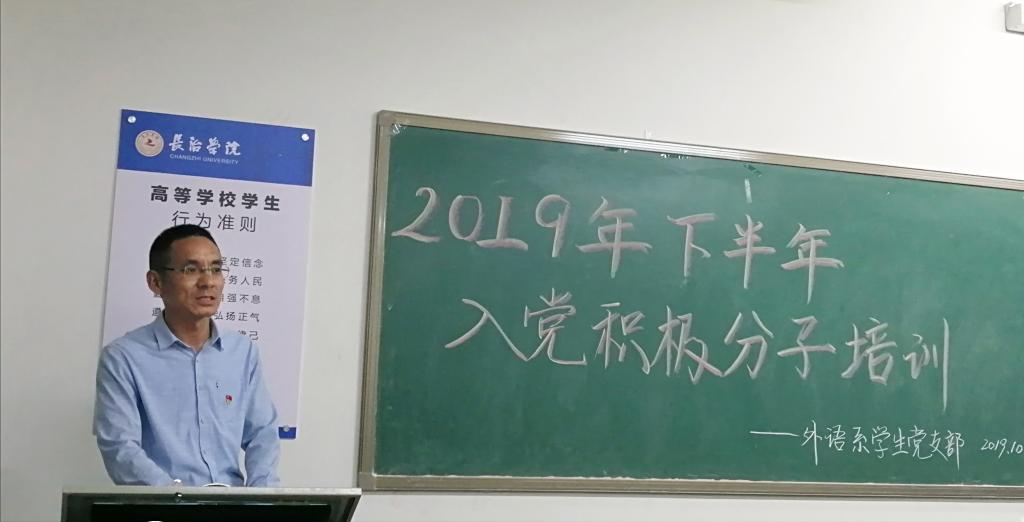 長治學院
CHANGZHI UNIVERSITY
高等学校学生
行为准则
坚定信念
务人民
自强不息
弘扬正气
律己
2019年下半年
入党积极分子培训
——外语系学生党支部 2019.10